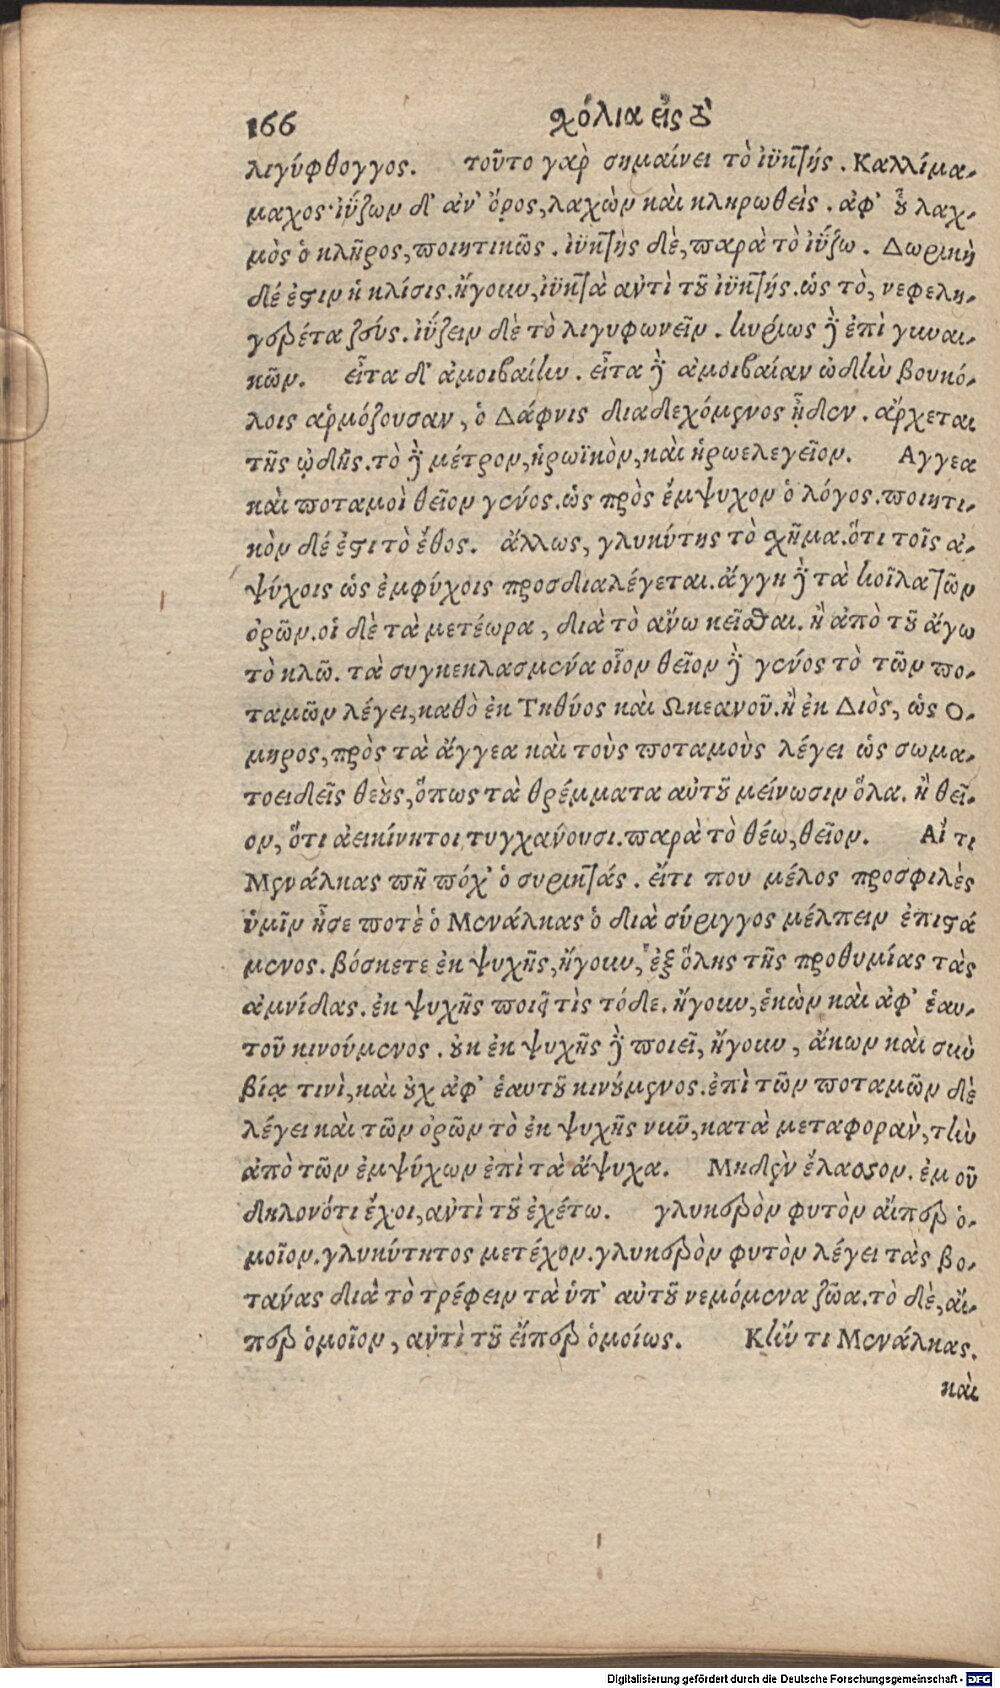 166 χόλια εἰς τ̀
λιγύφθογγος. τοῦτο γὰρ σημαίνει τὸ ἰϋκτής. Καλλίμα-
μαχος· ἰΰζων δ' ἀν' ὄρος, λαχὼν καὶ κληρωθεὶς. ἀφ' οὗ λαχ-
μὸς ὁ κλῆρος, ποιητικῶς. ἰϋκτὴς δὲ, παρὰ τὸ ἰΰζω. Δωρικὴ
δέ ἐστιν ἡ κλίσις. ἤγουν, ἰϋκτὰ ἀντὶ τοῦ ἰϋκτής. ὡς τὸ, νεφελη-
γερέτα ζεύς. ἰΰζειν δὲ τὸ λιγυφωνεῖν. κυρίως δὲ ἐπὶ γυναι-
κῶν. εἶτα δ' ἀμοιβαίην. εἶτα δὲ ἀμοιβαίαν ὠδὴν βουκό-
λοις ἁρμόζουσαν, ὁ Δάφνις διαδεχόμενος ᾖδεν. ἄρχεται
τῆς ᾠδῆς. τὸ δὲ μέτρον, ἡρωϊκὸν, καὶ ἡρωελεγεῖον. Αγγεα
καὶ ποταμοὶ θεῖον γένος. ὡς πρὸς ἔμψυχον ὁ λόγος. ποιητι-
κὸν δέ ἐστι τὸ ἔθος. ἄλλως, γλυκύτης τὸ χῆμα. ὅτι τοῖς ἀ-
ψύχοις ὡς ἐμφύχοις προσδιαλέγεται. ἄγγη δὲ τὰ κοῖλα τῶν
ὀρῶν. οἱ δὲ τὰ μετέωρα, διὰ τὸ ἄνω κεῖσθαι. ἢ ἀπὸ τοῦ ἄγω
τὸ κλῶ. τὰ συγκεκλασμένα οἷον θεῖον δὲ γένος τὸ τῶν πο-
ταμῶν λέγει, καθὸ ἐκ Τηθύος καὶ Ωκεανοῦ. ἢ ἐκ Διὸς, ὡς Ο-
μηρος, πρὸς τὰ ἄγγεα καὶ τοὺς ποταμοὺς λέγει ὡς σωμα-
τοειδεῖς θεοὺς, ὅπως τὰ θρέμματα αὐτοῦ μείνωσιν ὅλα. ἢ θεῖ-
ον, ὅτι ἀεικίνητοι τυγχάνουσι. παρὰ τὸ θέω, θεῖον. Αἴ τι
Μενάλκας πῆ πόχ' ὁ συρικτάς. εἴτι που μέλος προσφιλὲς
ὑμῖν ἦσε ποτὲ ὁ Μενάλκας ὁ διὰ σύριγγος μέλπειν ἐπιστά
μενος. βόσκετε ἐκ ψυχῆς, ἤγουν, ἐξ ὅλης τῆς προθυμίας τὰς
ἀμνίδας. ἐκ ψυχῆς ποιεῖ τὶς τόδε. ἤγουν, ἑκὼν καὶ ἀφ' ἑαυ-
τοῦ κινούμενος. οὐκ ἐκ ψυχῆς δὲ ποιεῖ, ἤγουν, ἄκων καὶ σὺν
βίᾳ τινὶ, καὶ οὐχ ἀφ' ἑαυτοῦ κινούμενος. ἐπὶ τῶν ποταμῶν δὲ
λέγει καὶ τῶν ὀρῶν τὸ ἐκ ψυχῆς νῦν, κατὰ μεταφορὰν, τὴν
ἀπὸ τῶν ἐμψύχων ἐπὶ τὰ ἄψυχα. Μηδὲν ἔλασσον. ἐμοῦ
δηλονότι ἔχοι, ἀντὶ τοῦ ἐχέτω. γλυκερὸν φυτὸν αἴπερ ὁ-
μοῖον. γλυκύτητος μετέχον. γλυκερὸν φυτὸν λέγει τὰς βο-
τάνας διὰ τὸ τρέφειν τὰ ὑπ' αὐτοῦ νεμόμενα ζῶα. τὸ δὲ, αἴ-
περ ὁμοῖον, ἀντὶ τοῦ εἴπερ ὁμοίως. Κἤν τι Μενάλκας.
καὶ
Digitalisierung gefördert durch die Deutsche Forschungsgemeinschaft - DFG